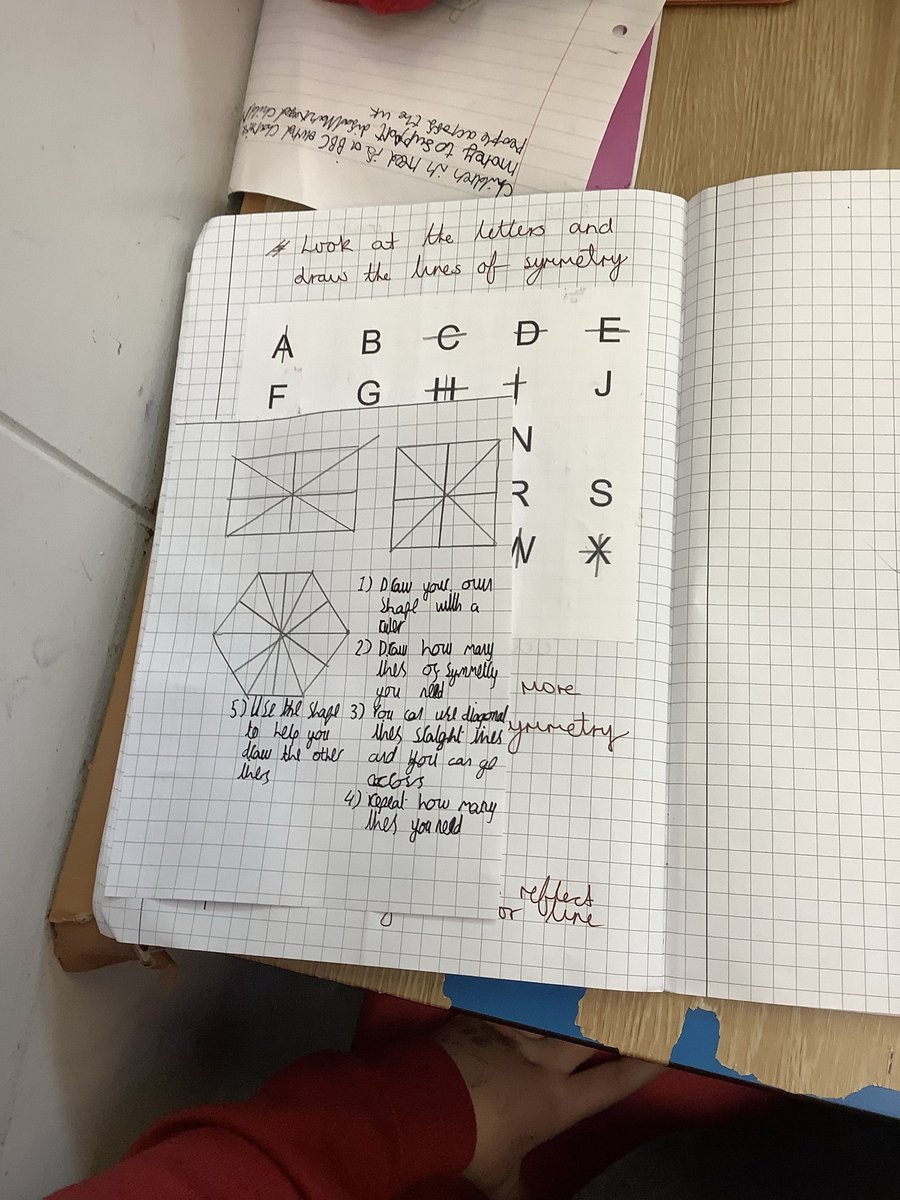 Children in need is a BBC
money to support disadvantaged child
People across the uk
* Look at the letters and
draw the lines of symmetry
A B C D E
F G H I J
N
R S
W X
1) Draw your own
shape with a
ruler
2) Draw how many
lines of symmetry
you need
3) You can use diagonal
lines staight lines
and you can go
across
4) repeat how many
lines you need
5) Use the shape
to help you
draw the other
lines
more
ymmetry
reflect
or line